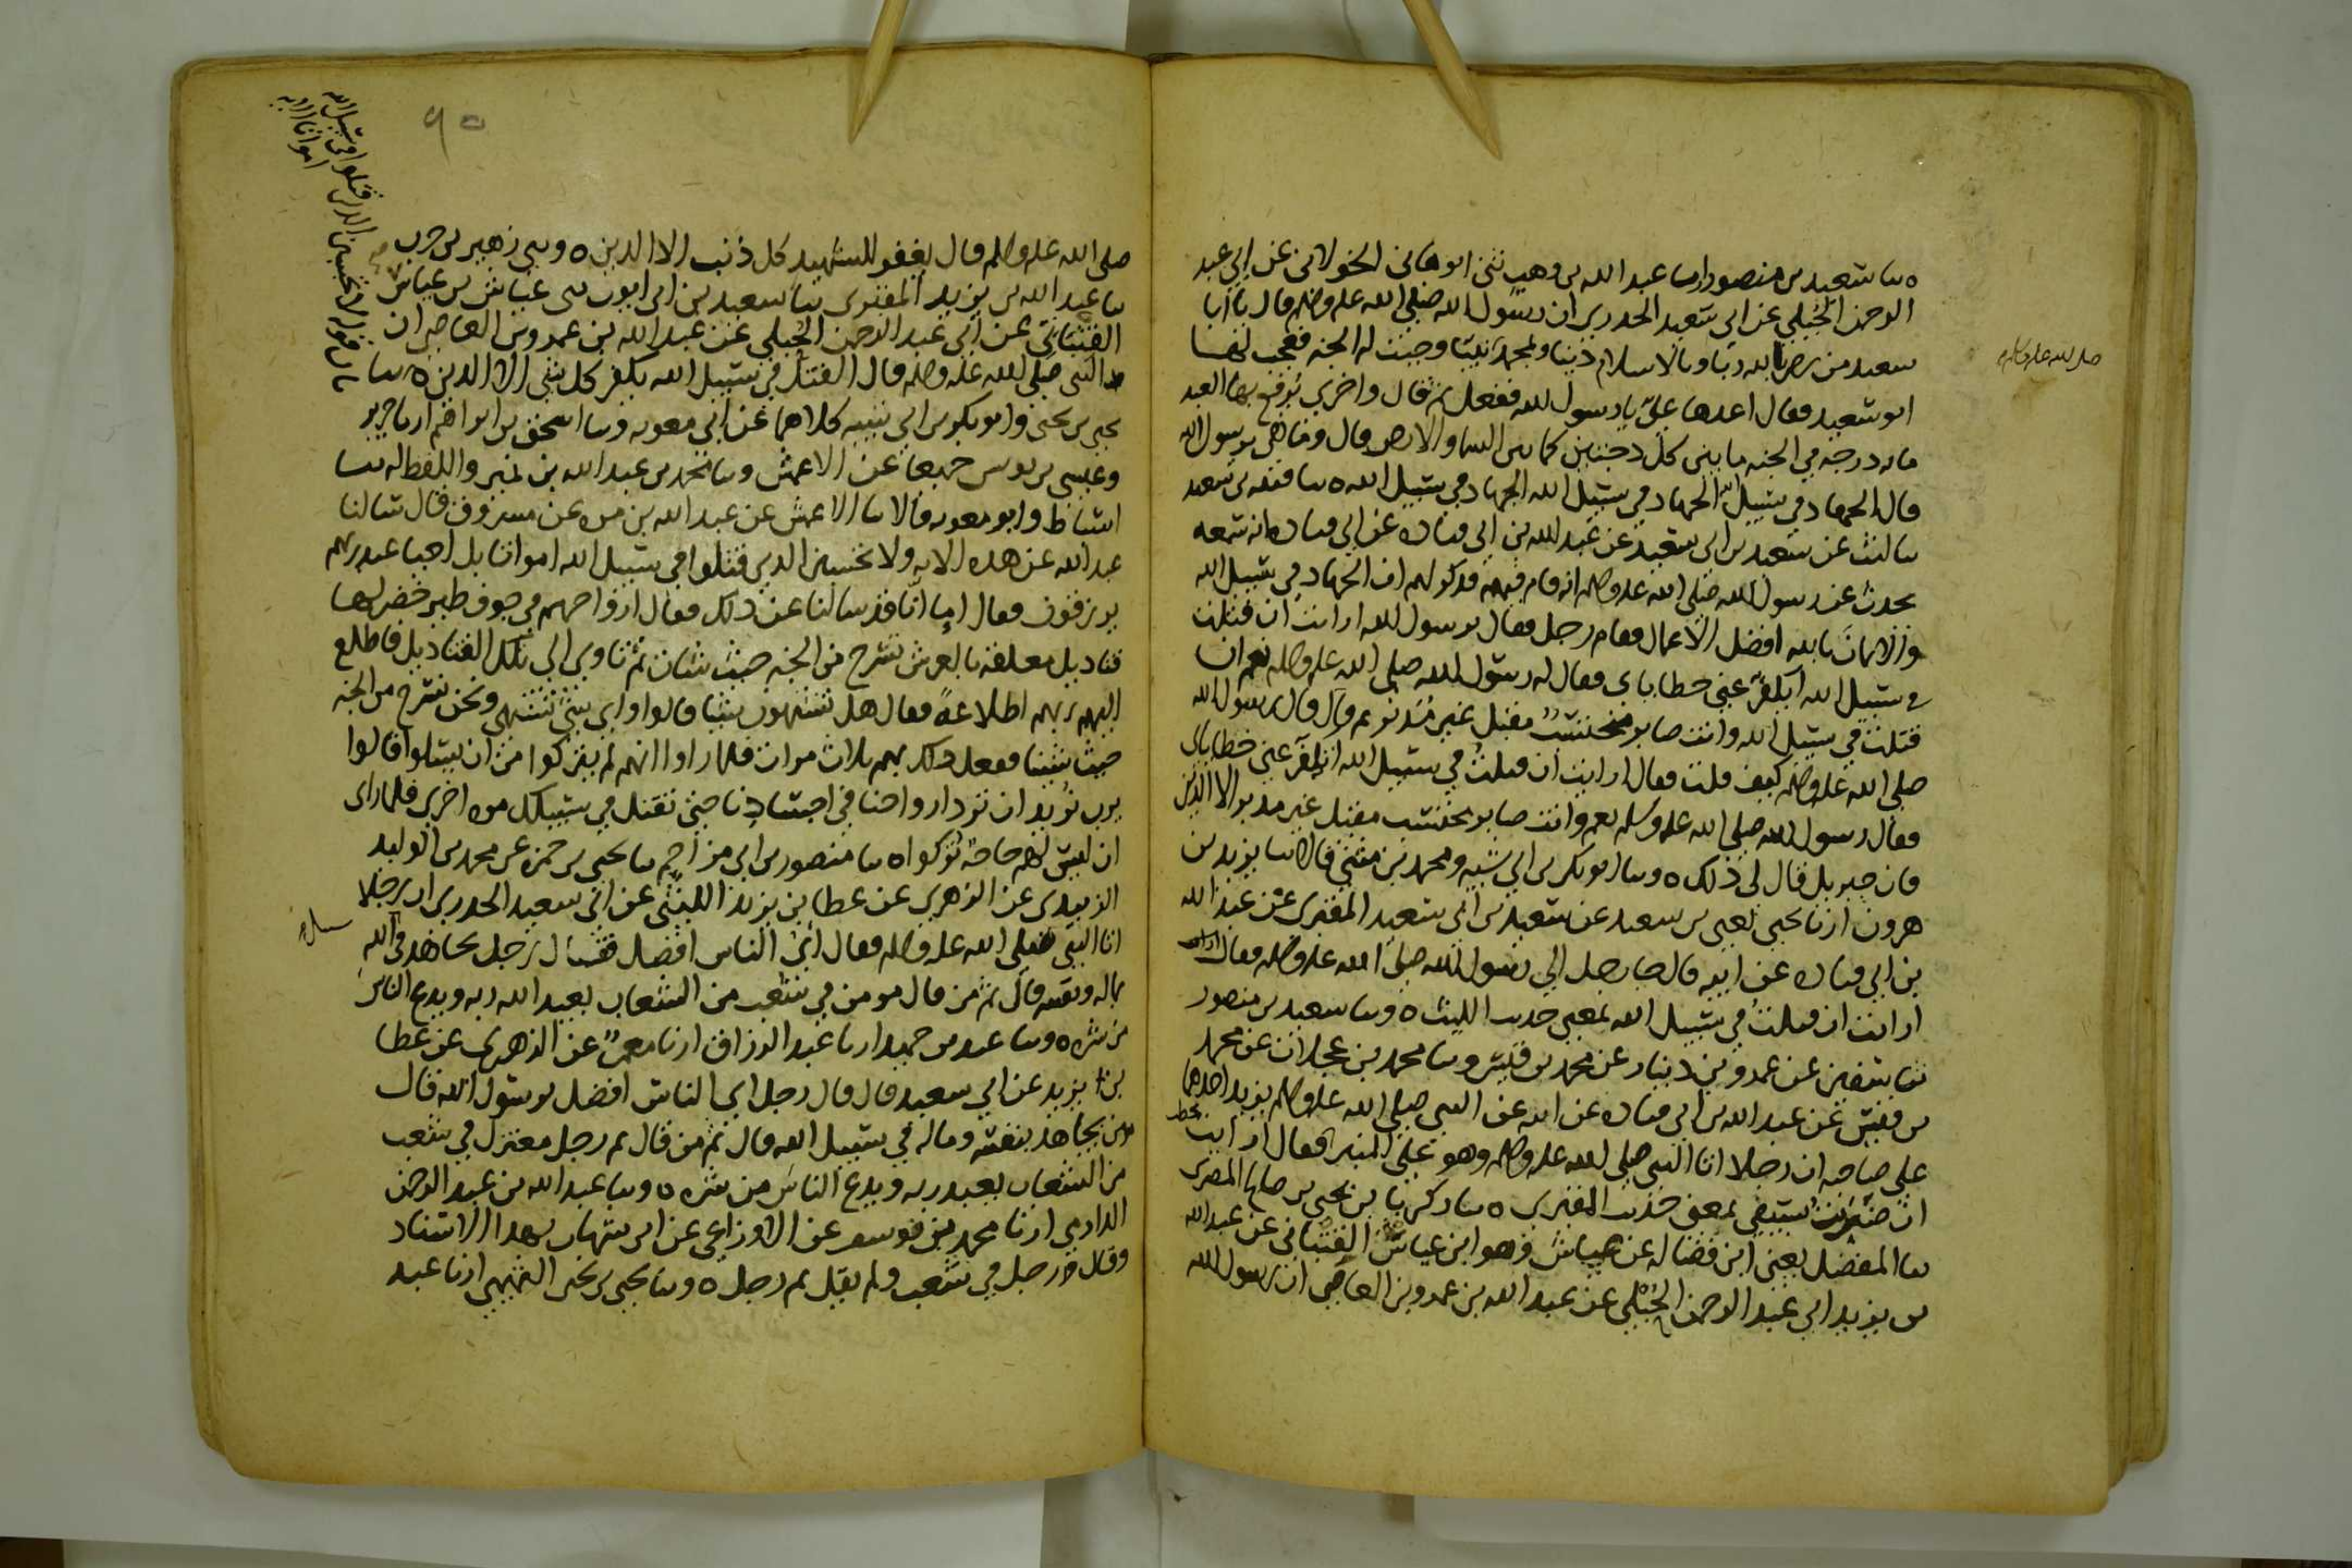 ه سا سعيد بن منصور ارسا عبد الله بن وهب ثنى ابو هانى الخولانى عن ابى عبد
الرحمن الحبلي عن ابي سعيد الخدري ان رسول الله صلى الله عليه وسلم قال يا با
سعيد من رضي بالله ربا وبالاسلام دينا وبمحمد نبيا وجبت له الجنه فعجب لها
صلى الله عليه وسلم
ابو سعيد فقال اعدها علي يا رسول الله ففعل ثم قال واخرى يرفع بها العبد
مايه درجه في الجنه ما بين كل درجتين كما بين السما والارض قال وما هي يرسول الله
قال الجهاد في سبيل الله الجهاد في سبيل الله الجهاد في سبيل الله ه سا قتيبه بن سعيد
سا ليث عن سعيد بن ابي سعيد عن عبد الله بن ابى قتاده عن ابى قتاده انه سمعه
يحدث عن رسول الله صلى الله عليه وسلم انه قام فيهم فذكر لهم ان الجهاد في سبيل الله
والايمان بالله افضل الاعمال فقام رجل فقال يرسول الله ارايت ان قتلت
في سبيل الله ايكفر عني خطاياى فقال له رسول الله صلى الله عليه وسلم نعم ان
قتلت في سبيل الله وانت صابر محتسب مقبل غير مدبر ثم قال رسول الله
صلى الله عليه وسلم كيف قلت فقال ارايت ان قتلت في سبيل الله اتكفر عني خطاياى
فقال رسول الله صلى الله عليه وسلم نعم وانت صابر محتسب مقبل غير مدبر الا الدين
فان جبريل قال لى ذلك ه وسا ابو بكر بن ابي شيبه ومحمد بن مثنى قالا سا يزيد بن
هرون ارنا يحيى يعنى بن سعيد عن سعيد بن ابى سعيد المقبرى عن عبد الله
بن ابى قتاده عن ابيه قال جا رجل الى رسول الله صلى الله عليه وسلم فقال
ارايت ان قتلت في سبيل الله بمعنى حديث الليث ه وسا سعيد بن منصور
سا سفين عن عمرو بن دينار عن محمد بن قيس وسا محمد بن عجلان عن محمد
بن قيس عن عبد الله بن ابى قتاده عن ابيه عن النبي صلى الله عليه وسلم يزيد احدهما
على صاحبه ان رجلا اتا النبي صلى الله عليه وسلم وهو على المنبر فقال ارايت
ان ضربت بسيفى بمعنى حديث المقبرى ه سا زكريا بن يحيى بن صالح المصرى
سا المفضل يعنى ابن فضاله عن عياش وهو ابن عباس القتبانى عن عبد الله
بن يزيد ابى عبد الرحمن الحبلي عن عبد الله بن عمرو بن العاصى ان رسول الله
٩٥
صلى الله عليه وسلم قال يغفر للشهيد كل ذنب الا الدين ه وسى زهير بن حرب
سا عبد الله بن يزيد المقرى سا سعيد بن ابى ايوب سى عياش بن عباس
القتبانى عن ابى عبد الرحمن الحبلي عن عبد الله بن عمرو بن العاص ان
النبى صلى الله عليه وسلم قال القتل في سبيل الله يكفر كل شى الا الدين ه سا
يحيى بن يحيى وابو بكر بن ابي شيبه كلاهما عن ابي معويه وسا اسحق بن ابراهيم ارنا جرير
وعيسى بن يونس جميعا عن الاعمش وسا محمد بن عبد الله بن نمير واللفظ له سا
اسباط وابو معويه قالا سا الاعمش عن عبد الله بن مره عن مسروق قال سالنا
عبد الله عن هذه الايه ولا تحسبن الذين قتلوا في سبيل الله امواتا بل احيا عند ربهم
يرزقون فقال اما انا قد سالنا عن ذلك فقال ارواحهم في جوف طير خضر لها
قناديل معلقه بالعرش تسرح من الجنه حيث شات ثم تاوى الى تلك القناديل فاطلع
اليهم ربهم اطلاعة فقال هل تشتهون شيا قالوا واى شى نشتهى ونحن نسرح من الجنه
حيث شينا ففعل ذلك بهم ثلاث مرات فلما راوا انهم لم يتركوا من ان يسلوا قالوا
يرب نريد ان ترد ارواحنا في اجسادنا حتى نقتل في سبيلك مره اخرى فلما راى
ان ليس لهم حاجه تركوا ه سا منصور بن ابى مزاحم سا يحيى بن حمزه عن محمد بن الوليد
الزبيدى عن الزهرى عن عطا بن يزيد الليثى عن ابى سعيد الخدرى ان رجلا
اتا النبى صلى الله عليه وسلم فقال اى الناس افضل فقال رجل يجاهد فى الله
سبيل
بماله ونفسه قال ثم من قال مومن في شعب من الشعاب يعبد الله ربه ويدع الناس
من شره ه وسا عبد بن حميد ارنا عبد الرزاق ارنا معمر عن الزهرى عن عطا
بن يزيد عن ابى سعيد قال قال رجل اى الناس افضل يرسول الله قال
مومن يجاهد بنفسه وماله في سبيل الله قال ثم من قال ثم رجل معتزل في شعب
من الشعاب يعبد ربه ويدع الناس من شره ه وسا عبد الله بن عبد الرحمن
الدارمى ارنا محمد بن يوسف عن الاوزاعى عن ابن شهاب بهذا الاسناد
وقال ورجل في شعب ولم يقل ثم رجل ه وسا يحيى بن يحيى التميمى ارنا عبد
باب قوله ولا تحسبن الذين قتلوا في سبيل الله
امواتا الايه